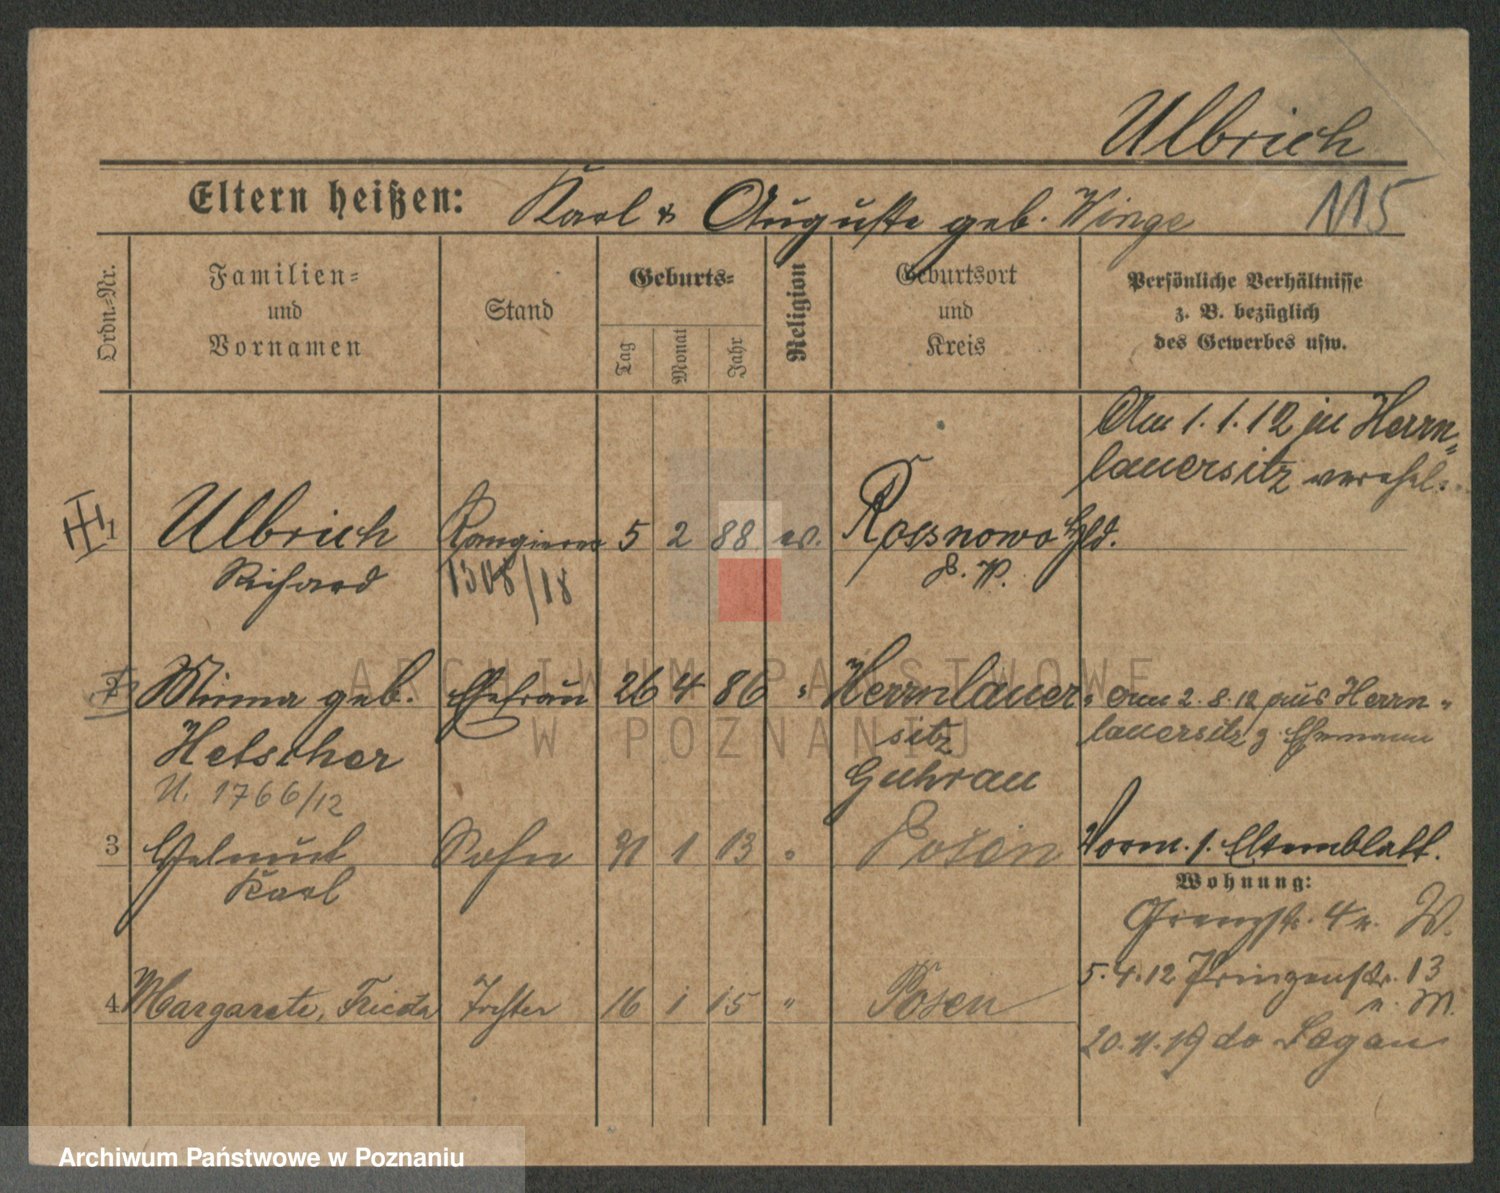 Ulbrich
Eltern heißen: Karl & Auguste geb. Winge
115
Ordn.-Nr.
Familien-
und
Vornamen
Stand
Geburts-
Tag
Monat
Jahr
Religion
Geburtsort
und
Kreis
Persönliche Verhältnisse
z. B. bezüglich
des Gewerbes usw.
Am 1.1.12 in Herrn-
lauersitz verehel.
1 Ulbrich Rangierer 5 2 88 ev. Rossnowo Hld.
Richard 1308/18 P. W.
2 Minna geb. Ehefrau 26 4 86 " Herrnlauer- Am 2.8.12 aus Herrn-
Hetscher sitz lauersitz z. Ehemann
U. 1766/12 Guhrau
3 Helmut Sohn 1 13 " Posen Vorm. s. Elternblatt.
Karl
Wohnung:
Grenzstr. 4 W.
4 Margarete, Frieda Tochter 16 1 15 " Posen
5.4.12 Prinzenstr. 13
20.11.19 do Sagan
ARCHIWUM PAŃSTWOWE
W POZNANIU
Archiwum Państwowe w Poznaniu